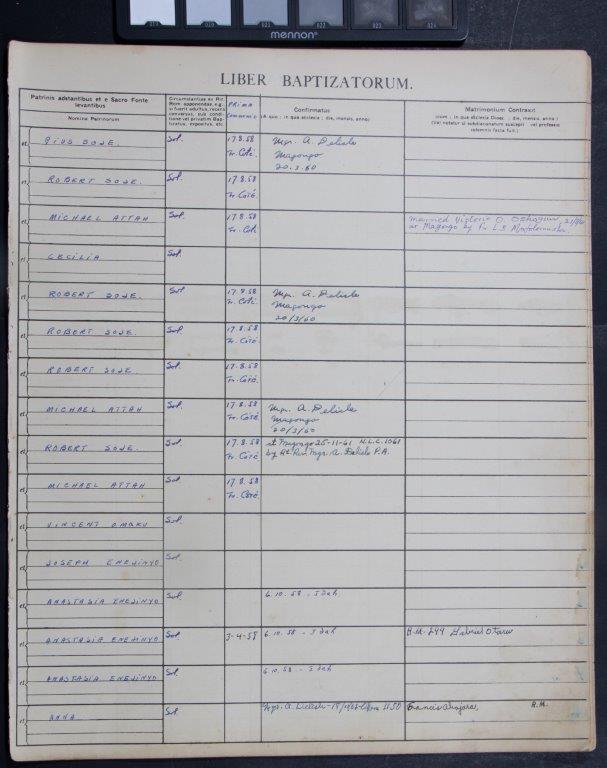 mennon
LIBER BAPTIZATORUM.
Patrinis adstantibus et e Sacro Fonte levantibus
Nomina Patrinorum
Circumstantiae ex Rit. Rom. apponendae, e.g., si fuerit adultus, recens conversus, sub conditione vel privatim Baptizatus, expositus, etc.
Prima Communio
Confirmatus
(A quo : in qua ecclesia : die, mensis, anno)
Matrimonium Contraxit
(cum : in qua ecclesia Dioec. : die, mensis, anno :)
(Vel notetur si subdiaconatum suscepit vel professio solemnis facta fuit.)
et PIUS SOJE. Sol. 17.8.58 Mgr. A. Delisle
Fr. Coté. Magongo
20.3.60
et ROBERT SOJE. Sol. 17.8.58
Fr. Coté.
et MICHAEL ATTAH Sol. 17.8.58 married Victoria O.
Fr. Coté at Magongo by Fr. L.S.
et CECILIA Sol.
et ROBERT SOJE. Sol 17.8.58 Mgr. A. Delisle
Fr. Coté. Magongo
20/3/60
et ROBERT SOJE. Sol. 17.8.58
Fr. Coté.
et ROBERT SOJE Sol. 17.8.58
Fr. Coté.
et MICHAEL ATTAH Sol. 17.8.58 Mgr. A. Delisle
Fr. Coté. Magongo
20/3/60
et ROBERT SOJE. Sol. 17.8.58 at Magongo 25-11-61 N.L.C. 1061
Fr. Coté by Rt. Rev. Mgr. A. Delisle P.A.
et MICHAEL ATTAH Sol 17.8.58
Fr. Coté.
et VINCENT OMAKU Sol.
et JOSEPH ENEJINYO Sol.
et ANASTASIA ENEJINYO Sol. 6.10.58 - Idah
et ANASTASIA ENEJINYO Sol. 3-4-59 6.10.58 - Idah R.M. 299 Gabriel Otaru
et ANASTASIA ENEJINYO Sol. 6.10.58 - Idah
et ANNA Sol. Mgr. A. Delisle 1150 Francis R.M.